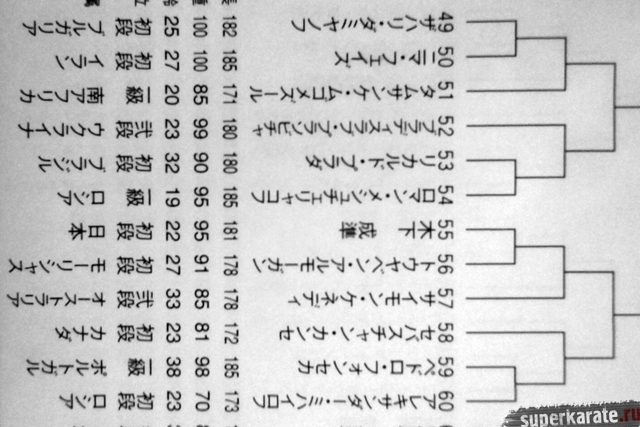 49 ザハリ・ダミヤノフ 182 100 25 初段 ブルガリア
50 ニマ・フェイズ 185 100 27 初段 イラン
51 タムサンケ・ムコメズール 171 85 20 一級 南アフリカ
52 ブラディスラブ・ブランビチャ 180 99 23 弐段 ウクライナ
53 リカルド・ブラダ 180 90 32 初段 ブラジル
54 ロマン・メシュチェリャコフ 185 95 19 一級 ロシア
55 木下 成準 181 95 22 初段 日本
56 トウヤベン・アルモーガン 178 91 27 初段 モーリシャス
57 サイモン・ケネディ 178 85 33 弐段 オーストラリア
58 セバスチャン・カンセ 172 81 23 初段 カナダ
59 ペドロ・フォンセカ 185 98 38 一級 ポルトガル
60 アレキサンダー・ミハイロフ 173 70 23 初段 ロシア
superkarate.ru